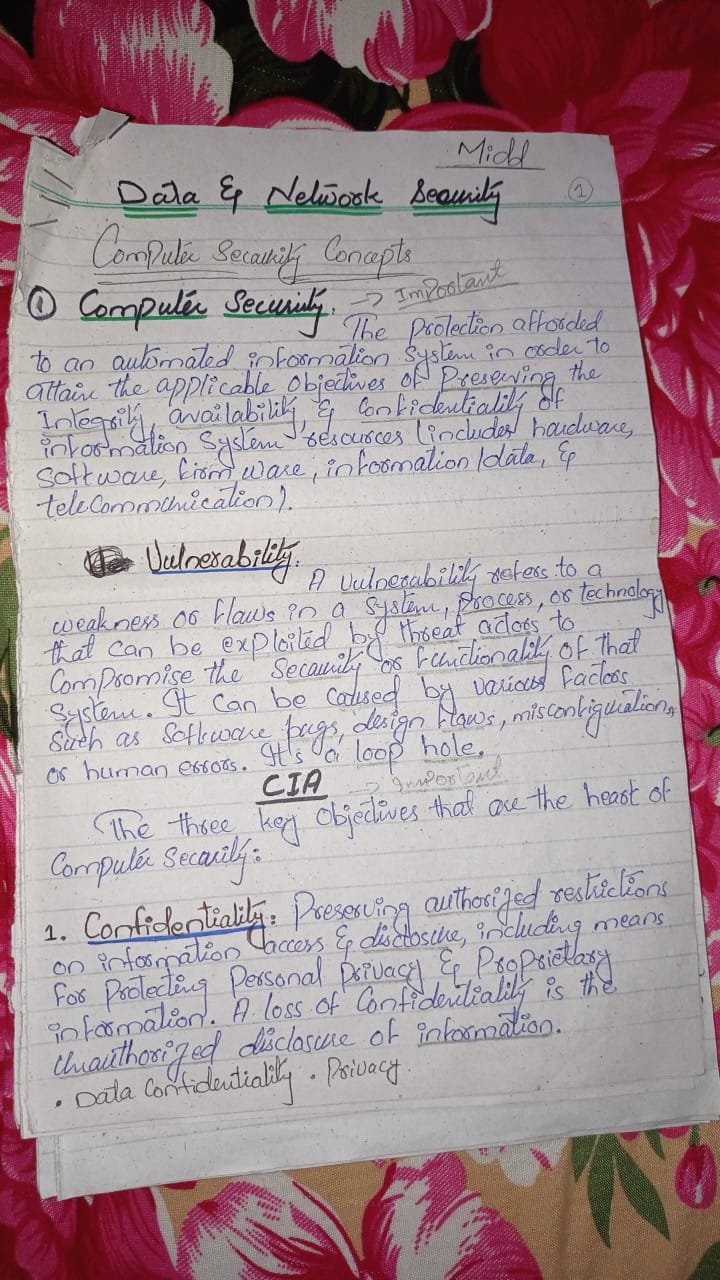 Midd
Data & Network Security ①
Computer Security Concepts
① Computer Security. → Important
The Protection afforded
to an automated information System in order to
attain the applicable Objectives of Preserving the
Integrity, availability, & Confidentiality of
information System resources (includes hardware,
Software, firmware, information/data, &
telecommunication).
Vulnerability.
A vulnerability refers to a
weakness or flaws in a System, Process, or technology
that can be exploited by threat actors to
Compromise the Security or functionality of that
System. It can be caused by various factors
Such as Software bugs, design flaws, misconfigurations,
or human errors. It's a loop hole.
CIA → Important
The three key Objectives that are the heart of
Computer Security:
1. Confidentiality: Preserving authorized restrictions
on information access & disclosure, including means
For Protecting Personal Privacy & Proprietary
information. A loss of Confidentiality is the
Unauthorized disclosure of information.
• Data Confidentiality • Privacy.